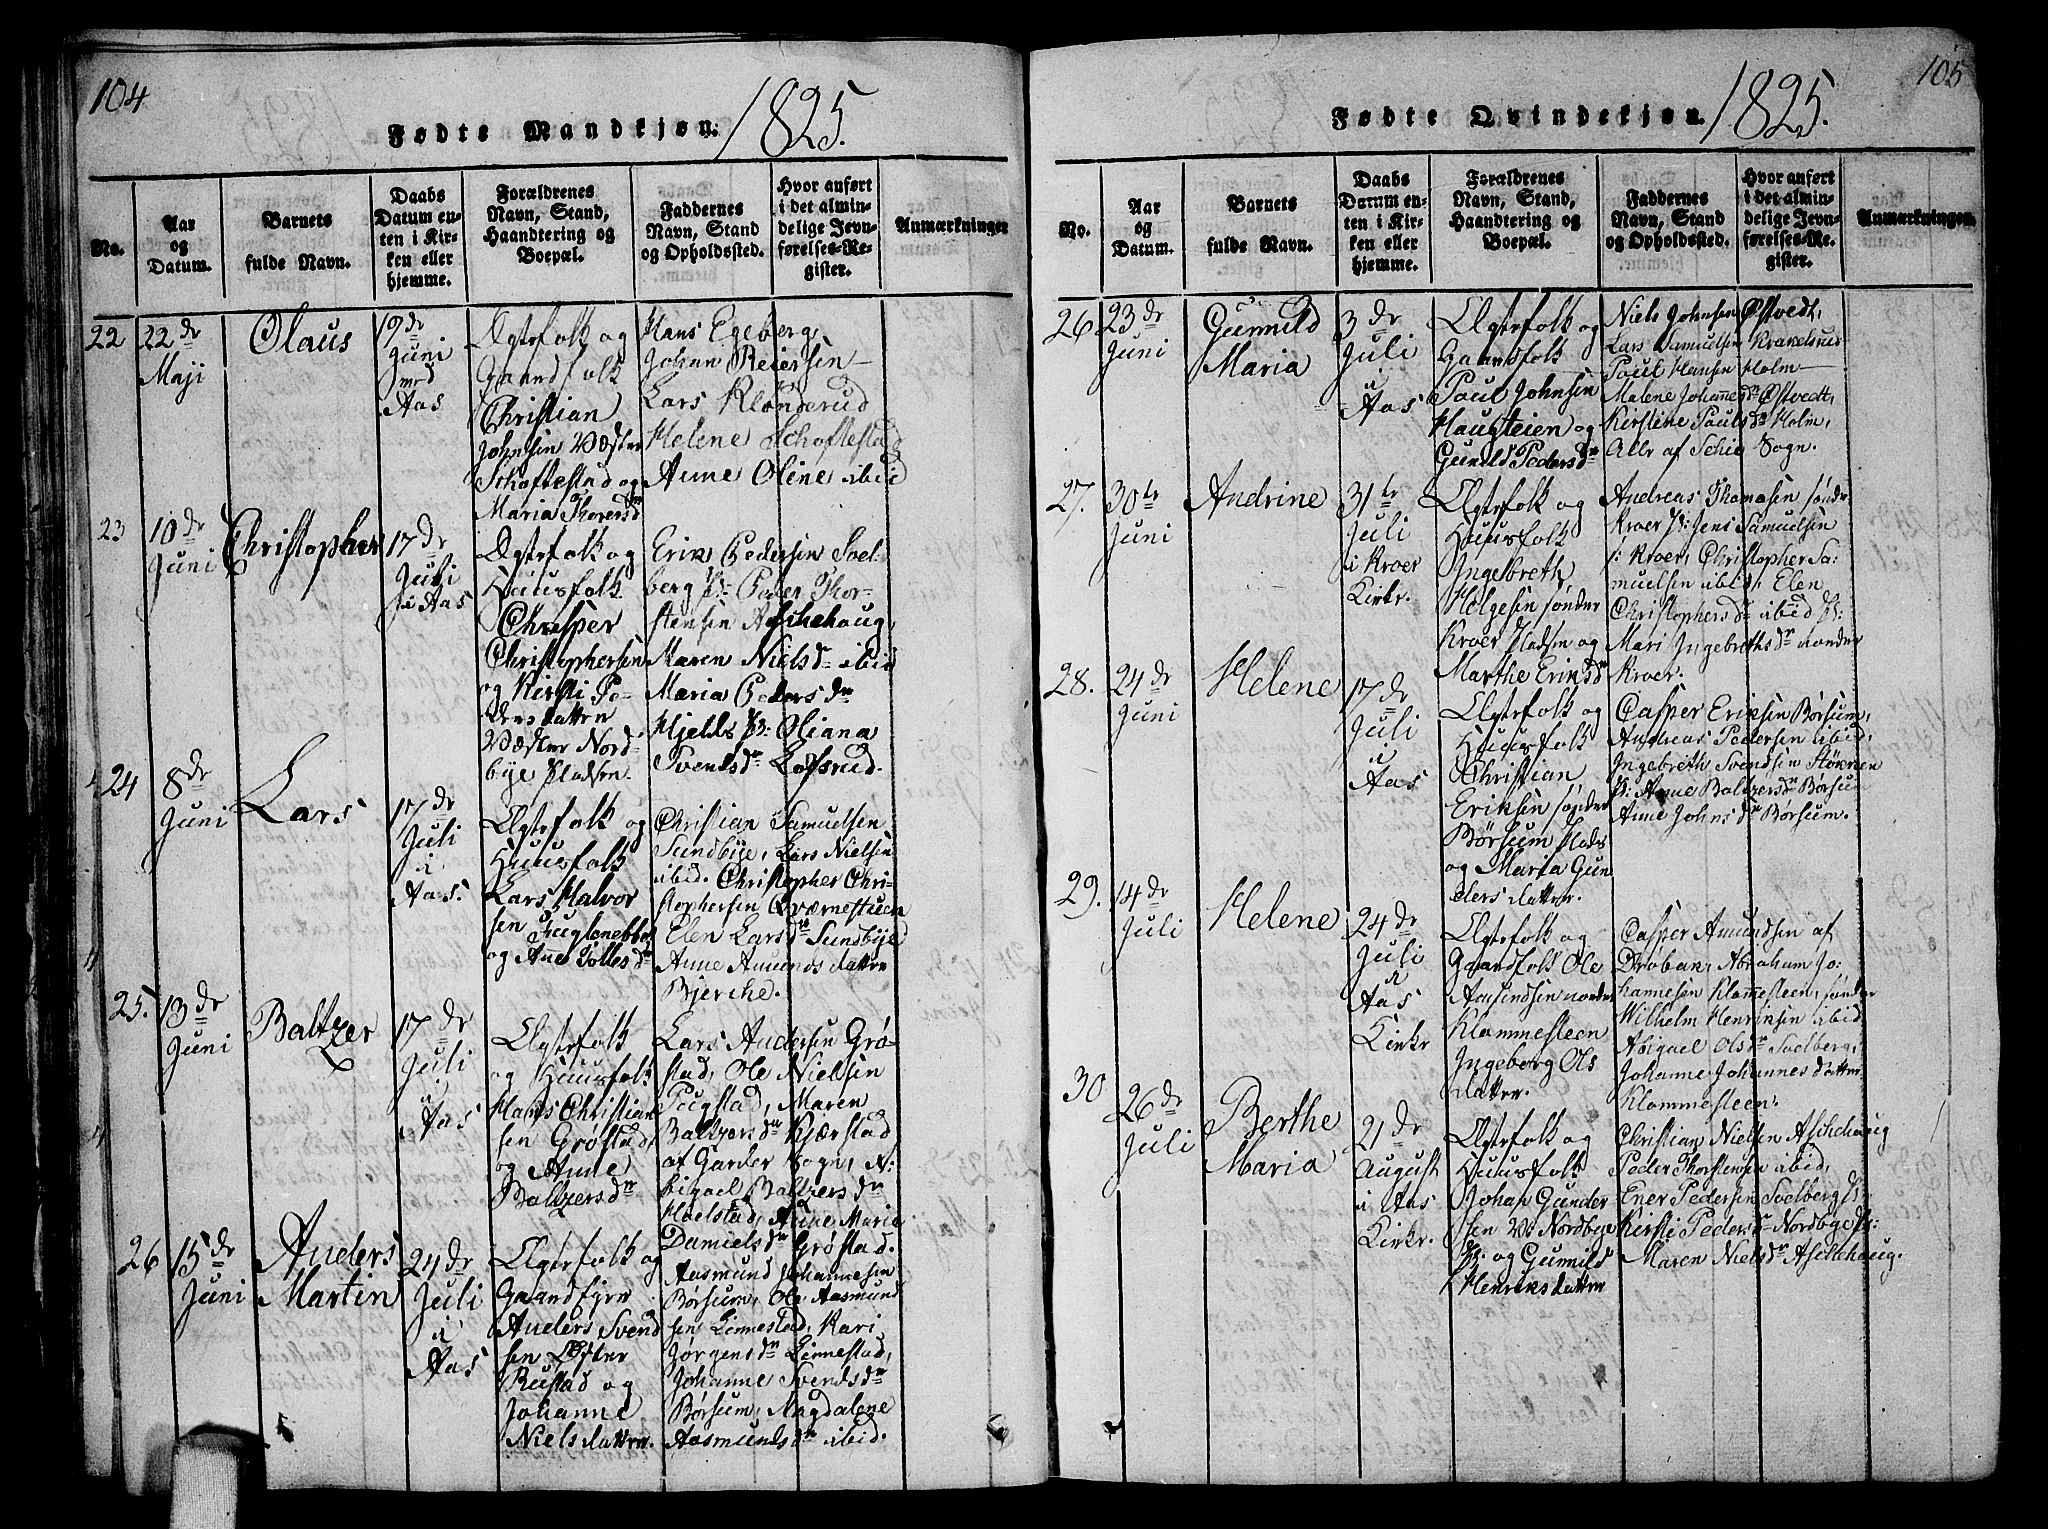 104
Fødte Mandkjøn. 1825.
No.
Aar
og
Datum.
Barnets
fulde Navn.
Daabs
Datum en-
ten i Kir-
ken eller
hjemme.
Forældrenes
Navn, Stand,
Haandtering og
Boepæl.
Faddernes
Navn, Stand
og Opholdssted.
Hvor anført
i det almin-
delige Jevn-
førelses-Re-
gister.
Anmærkninger
22
22de
Maji
Olaus
19de
Juni
ved
Aas
Ægtefolk og
Gaardfolk
Christian
Johnsen Væster
Schoftestad og
Maria Thoresdr
Hans Egeberg,
Johan Reiersen
Lars Klonderud
Helene Schoftestad
Anne Oline ibid
23
10de
Juni
Christopher
17de
Juli
i Aas
Ægtefolk og
Huusfolk
Chresper
Christophersen
og Kirsti Pe-
dersdatter
Væster Nord-
bye Pladsen.
Erik Pedersen Soel-
berg P: Peder Thor-
stensen Aschehaug,
Maren Nielsdr ibid
Maria Pedersdr
Hjelds P: Oliana
Svendsdr Lofsrud.
24
8de
Juni
Lars
17de
Juli
i
Aas.
Ægtefolk og
Huusfolk
Lars Halvor
sen Fuglenebbet
og Ane Tollesdr
Christian Samuelsen
Sundbye, Lars Nielsen
ibid. Christopher Chri-
stophersen Qværnestuen
Elen Larsdr Sundbye
Anne Amunds datter
Bjerche.
25.
13de
Juni
Baltzer
17de
Juli
i
Aas
Ægtefolk
og Huusfolk
Hans Christian
sen Grøstad,
og Anne
Baltzersdr
Lars Andersen Grø-
stad, Ole Nielsen
Pugstad, Maren
Baltzersdr Kjærstad
af Garder Sogn, A:
bigael Baltzersdr
Hoelstad, Anne Marie
Danielsdr Grøstad.
26
15de
Juni
Anders
Martin
24de
Juli
i
Aas
Ægtefolk og
Gaardfyrr
Anders Svend
sen Øster
Rustad og
Johanne
Niels datter.
Aasmund Johannesen
Børsum, Ole Aasmund
sen Linnestad, Kari
Jørgensdr Linnestad,
Johanne Svendsdr
Børsum, Magdalene
Aasmundsdr ibid.
105
Fødte Qvindekjøn. 1825.
No.
Aar
og
Datum.
Barnets
fulde Navn.
Daabs
Datum en-
ten i Kir-
ken eller
hjemme.
Forældrenes
Navn, Stand,
Haandtering og
Boepæl.
Faddernes
Navn, Stand
og Opholdssted.
Hvor anført
i det almin-
delige Jevn-
førelses-Re-
gister.
Anmærkninger.
26
23de
Juni
Gunnild
Maria
3de
Juli
i
Aas
Ægtefolk og
Gaardfolk
Poul Johnsen
Haugteien og
Gunild Pedersdr
Niels Johnsen Østvedt,
Lars Samuelsen Krakelsrud
Poul Hansen Holm
Malene Johannesdr Østvedt,
Kirstine Poulsdr Holm,
Alle af Schie Sogn.
27.
30te
Juni
Andrine
31te
Juli
i Kroer
Kirke.
Ægtefolk og
Huusfolk
Ingebreth
Helgesen sønder
Kroer Pladsen og
Marthe Eriksdr
Andreas Thomasen søndr
Kroer P: Jens Samuelsen
s: Kroer, Christopher Sa-
muelsen ibid, Elen
Christophersdr ibid P:
Mari Ingebrethsdr nordre
Kroer.
28.
24de
Juni
Helene
17de
Juli
i
Aas
Ægtefolk og
Huusfolk
Christian
Eriksen sønder
Børsum Plads
og Maria Gun
ders datter.
Casper Eriksen Børsum,
Andreas Pedersen ibid,
Ingebreth Svendsen Støkken
P: Anne Baltzersdr Børsum
Anne Johnsdr Børsum.
29.
14de
Juli
Helene
24de
Juli
i
Aas
Kirke
Ægtefolk og
Gaardfolk Ole
Aasundsen nordre
Klommesteen
Ingeborg Ols
datter.
Casper Amundsen af
Drøban, Abraham Jo-
hannesen Klommesteen, sønder
Wilhelm Henriksen ibid
Abigael Olsdr Soelberg,
Johanne Johannesdatter
Klommesteen.
30
26de
Juli
Berthe
Maria
21de
August
i Aas
Kirke.
Ægtefolk og
Huusfolk
Johan Gunder
sen V: Nordbye
P. og Gunnild
Henriksdatter
Christian Nielsen Aschehaug
Peder Thorstensen ibid,
Ener Pedersen Soelberg P:
Kirsti Pedersdr Nordbye P:
Maren Nielsdr Aschehaug.